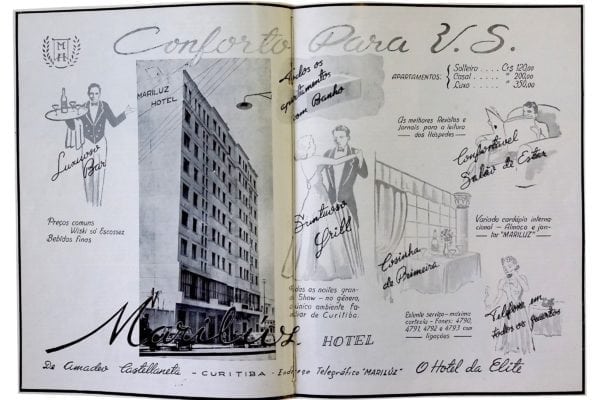 MH
Conforto Para V.S.
MARILUZ
HOTEL
Todos os
apartamentos
com Banho
APARTAMENTOS:
Solteiro .... Cr$ 120,00
Casal .... " 200,00
Luxo .... " 350,00
Luxuoso
Bar
Preços comuns
Wiski só Escossez
Bebidas finas
As melhores Revistas e
Jornais para a leitura
dos Hóspedes
Confortável
Salão de Estar
Suntuoso
Grill
Todas as noites gran-
de Show - no gênero,
o único ambiente fa-
miliar de Curitiba.
Cosinha
de Primeira
Variado cardápio interna-
cional - Almoço e jan-
tar "MARILUZ"
Exímio serviço - máxima
cortezia - Fones: 4790,
4791, 4792 e 4793 com
ligações
Telefone em
todos os quartos
Mariluz
HOTEL
De Amadeo Castellaneta - CURITIBA - Endereço Telegráfico "MARILUZ" O Hotel da Elite